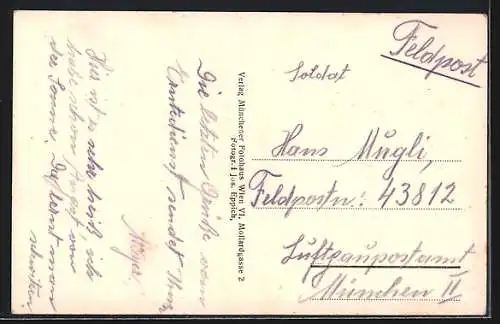 Feldpost
Soldat
Hans Mugli,
Feldpostn.: 43812
Luftgaupostamt
München II
Verlag Münchener Fotohaus Wien VI. Mollardgasse 2
Fotogr.: Jos. Eppich,
Die letzten Grüße vom
Erntedienst sendet Ihnen
Hier ist es sehr heiß, ich
habe schon Angst vor
der Sonne. Da lernt man
schwitzen